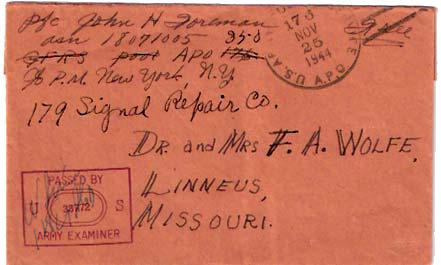 Pfc John H Foreman
asn 18071005 350
GFRS pool APO
c/o P.M. New York, N.Y
179 Signal Repair Co.
173
NOV
25
1944
U.S. A.P.O.
Free
Dr. and Mrs F. A. Wolfe,
Linneus,
Missouri.
PASSED BY
U 33772 S
ARMY EXAMINER